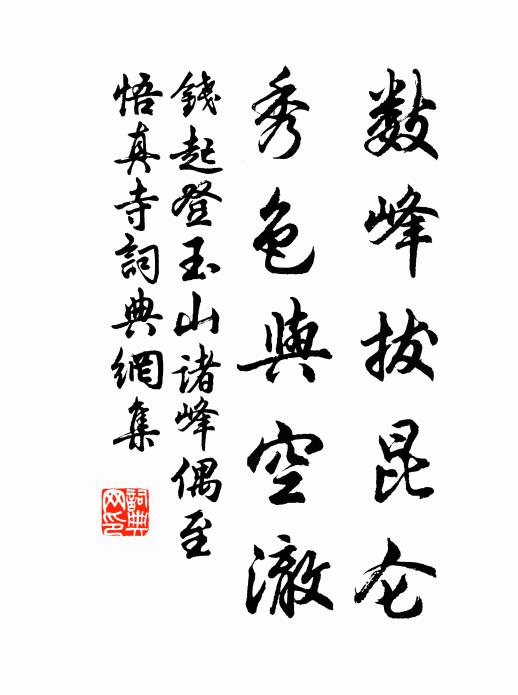 数峰拔昆仑
秀色與空澈
錢起登玉山诸峰偶至
悟真寺詞典網集
詞典网印